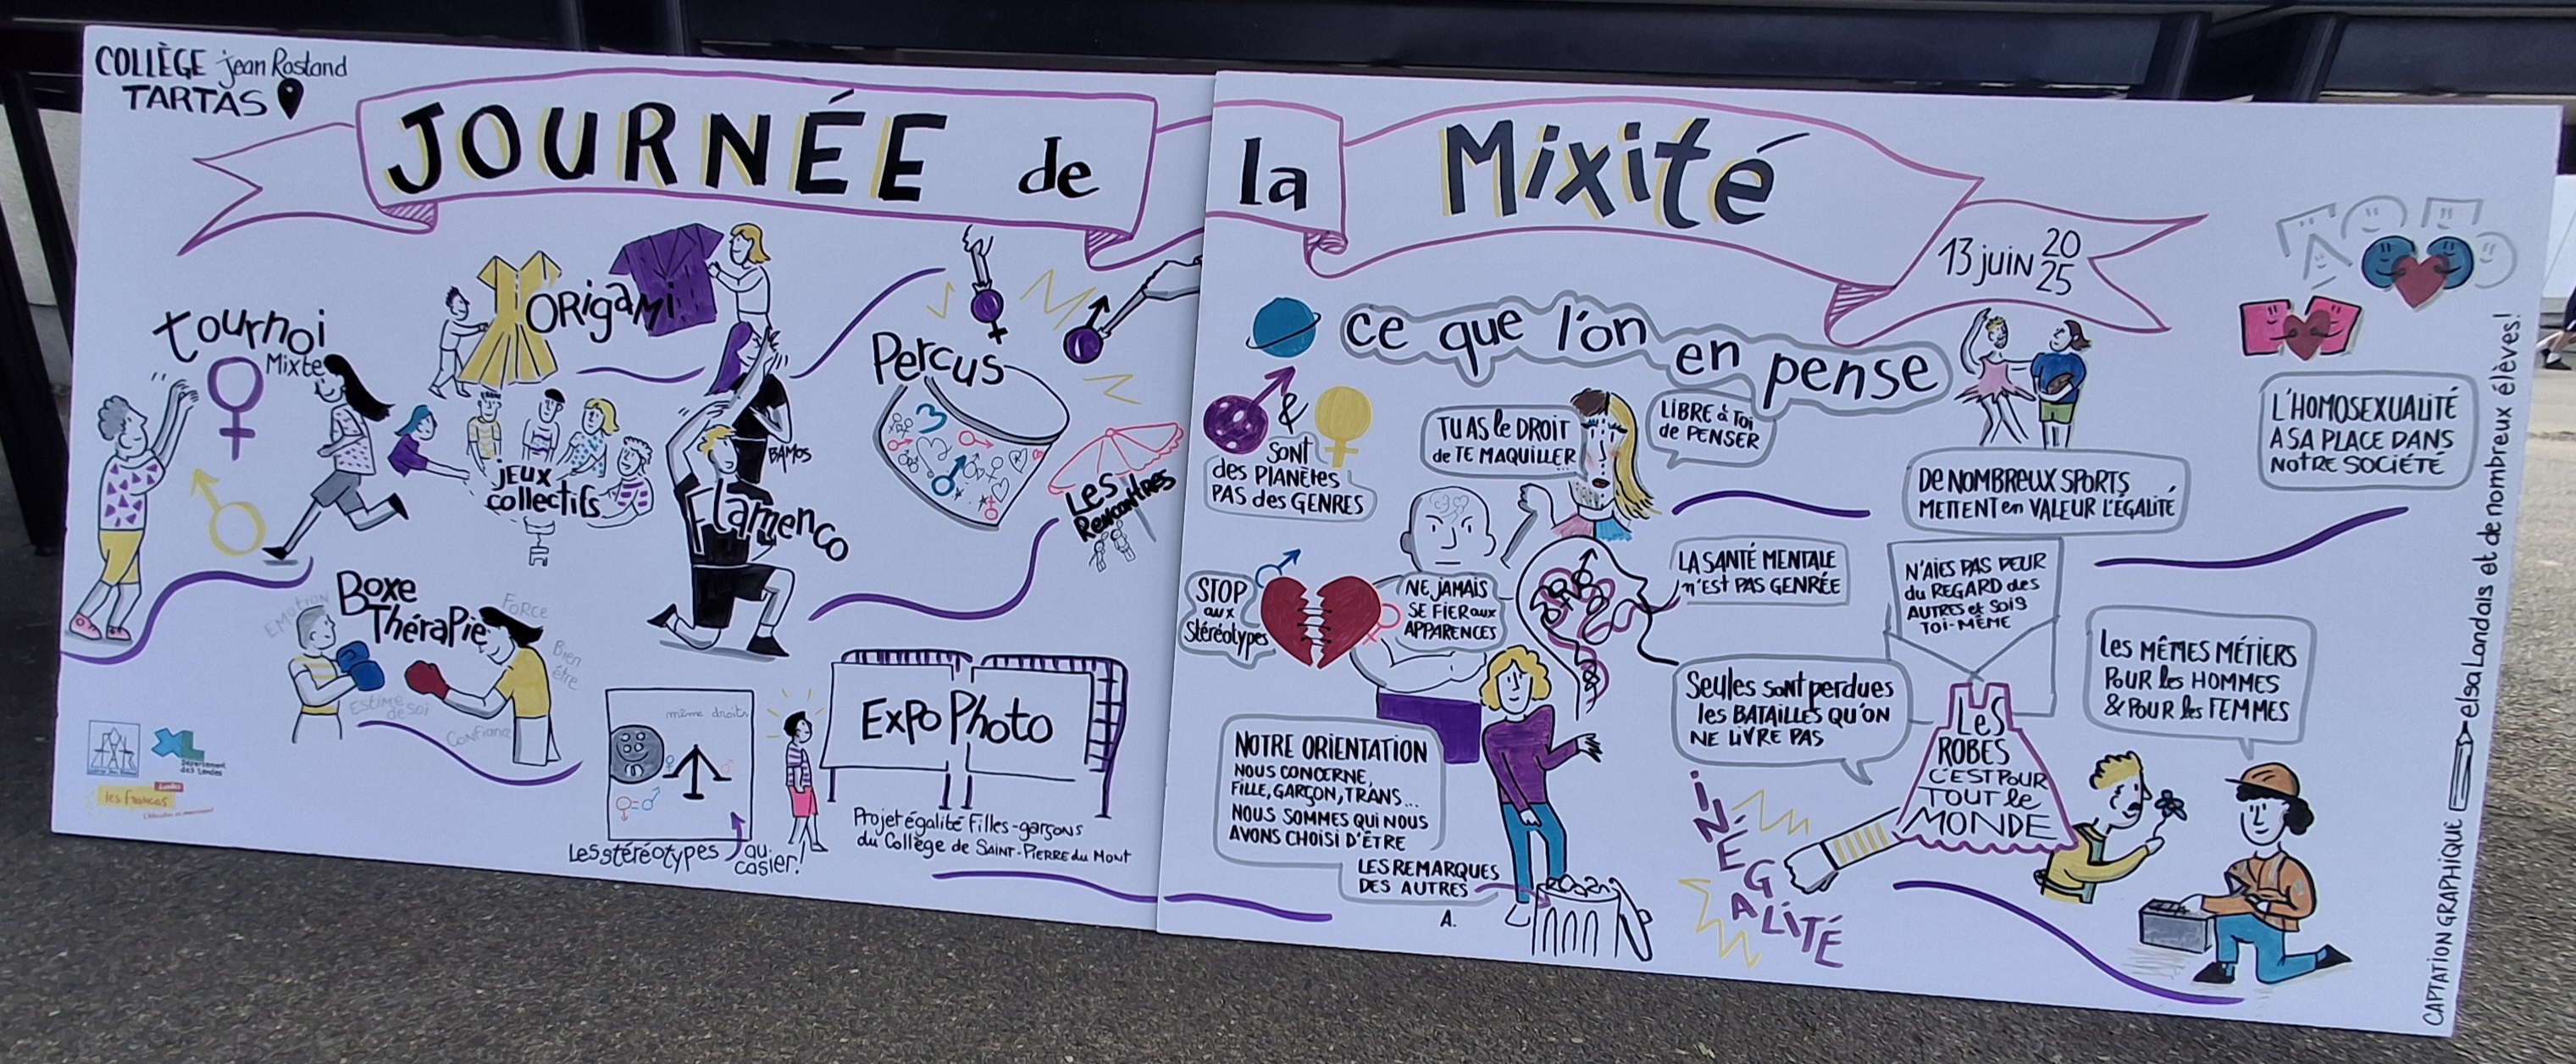 COLLÈGE jean Rostand
TARTAS
JOURNÉE de
la Mixité
13 juin 2025
tournoi
Mixte
ORIGAMI
jEUX
collectifs
BAMOS
Flamenco
Percus
Les
Rencontres
Boxe
ThéraPie
EMOTION
FORCE
Bien
être
Estime
de soi
Confiance
XL
Département
des Landes
Landes
les Francas
même droits
Les stéréotypes au
casier!
Expo Photo
Projet égalité Filles-garçons
du Collège de SAINT-PIERRE du MONT
ce que l'on en pense
&
SONT
des PLANÈTES
PAS des GENRES
TU AS le DROIT
de TE MAQUILLER...
LIBRE à Toi
de PENSER
DE NOMBREUX SPORTS
METTENT en VALEUR L'ÉGALITÉ
L'HOMOSEXUALITÉ
A SA PLACE DANS
NOTRE SOCIÉTÉ
STOP
aux
Stéréotypes
NE JAMAIS
SE FIER aux
APPARENCES
LA SANTÉ MENTALE
n'EST PAS GENRÉE
N'AIES PAS PEUR
du REGARD des
AUTRES et SOIS
TOI-MÊME
Les MÊMES MÉTIERS
POUR les HOMMES
& POUR les FEMMES
Seules sont perdues
les BATAILLES QU'ON
NE LIVRE PAS
NOTRE ORIENTATION
NOUS CONCERNE,
FILLE, GARÇON, TRANS...
NOUS SOMMES QUI NOUS
AVONS CHOISI D'ÊTRE
LES REMARQUES
DES AUTRES
A.
LES
ROBES
C'EST POUR
TOUT le
MONDE
iNÉGALiTÉ
CAPTATION GRAPHIQUE elsa Landais et de nombreux élèves!